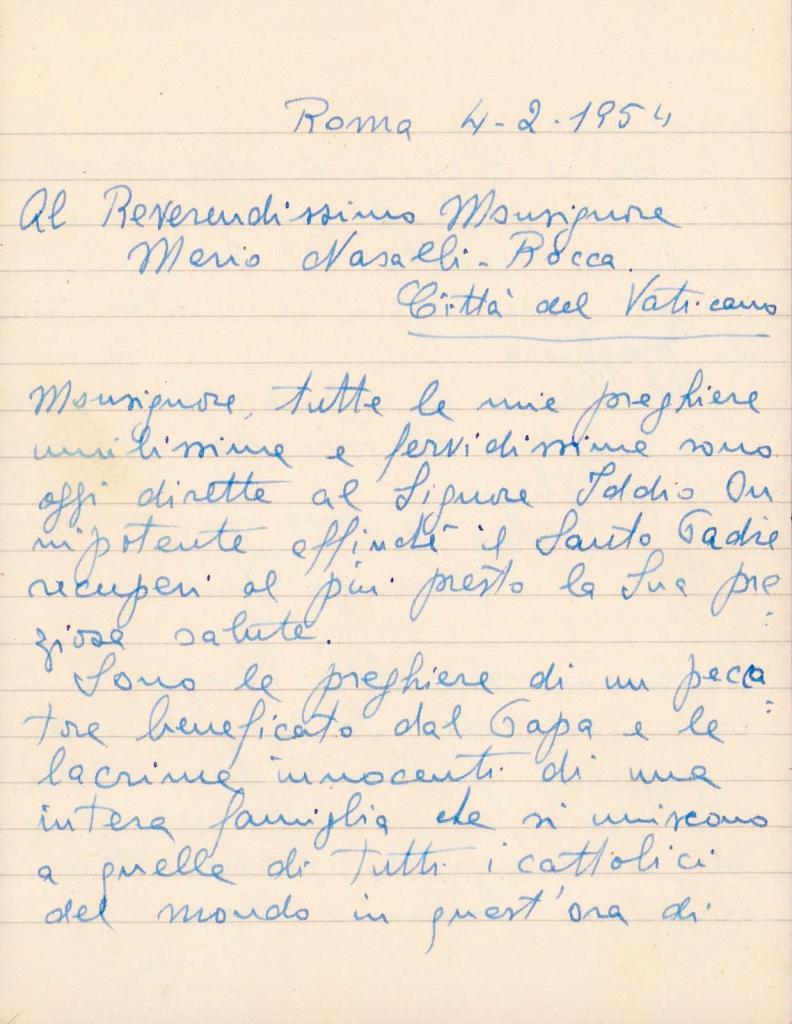 Roma 4-2-1954
Al Reverendissimo Monsignore
Mario Nasalli-Rocca.
Città del Vaticano
Monsignore, tutte le mie preghiere
umilissime e fervidissime sono
oggi dirette al Signore Iddio On
nipotente affinché il Santo Padre
recuperi al più presto la Sua pre
ziosa salute.
Sono le preghiere di un pecca
tore beneficato dal Papa e le
lacrime innocenti di una
intera famiglia che si uniscono
a quelle di tutti i cattolici
del mondo in quest'ora di